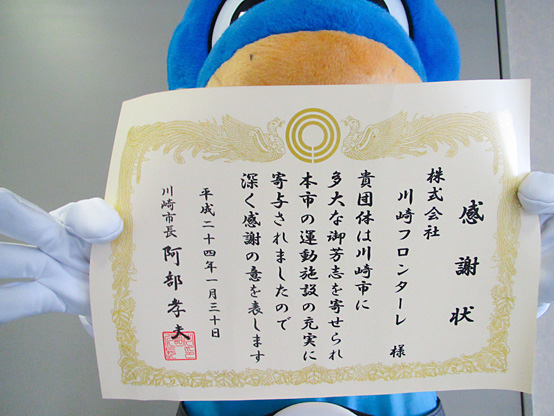 感謝状
株式会社
川崎フロンターレ 様
貴団体は川崎市に
多大な御芳志を寄せられ
本市の運動施設の充実に
寄与されましたので
深く感謝の意を表します
平成二十四年一月三十日
川崎市長 阿部孝夫